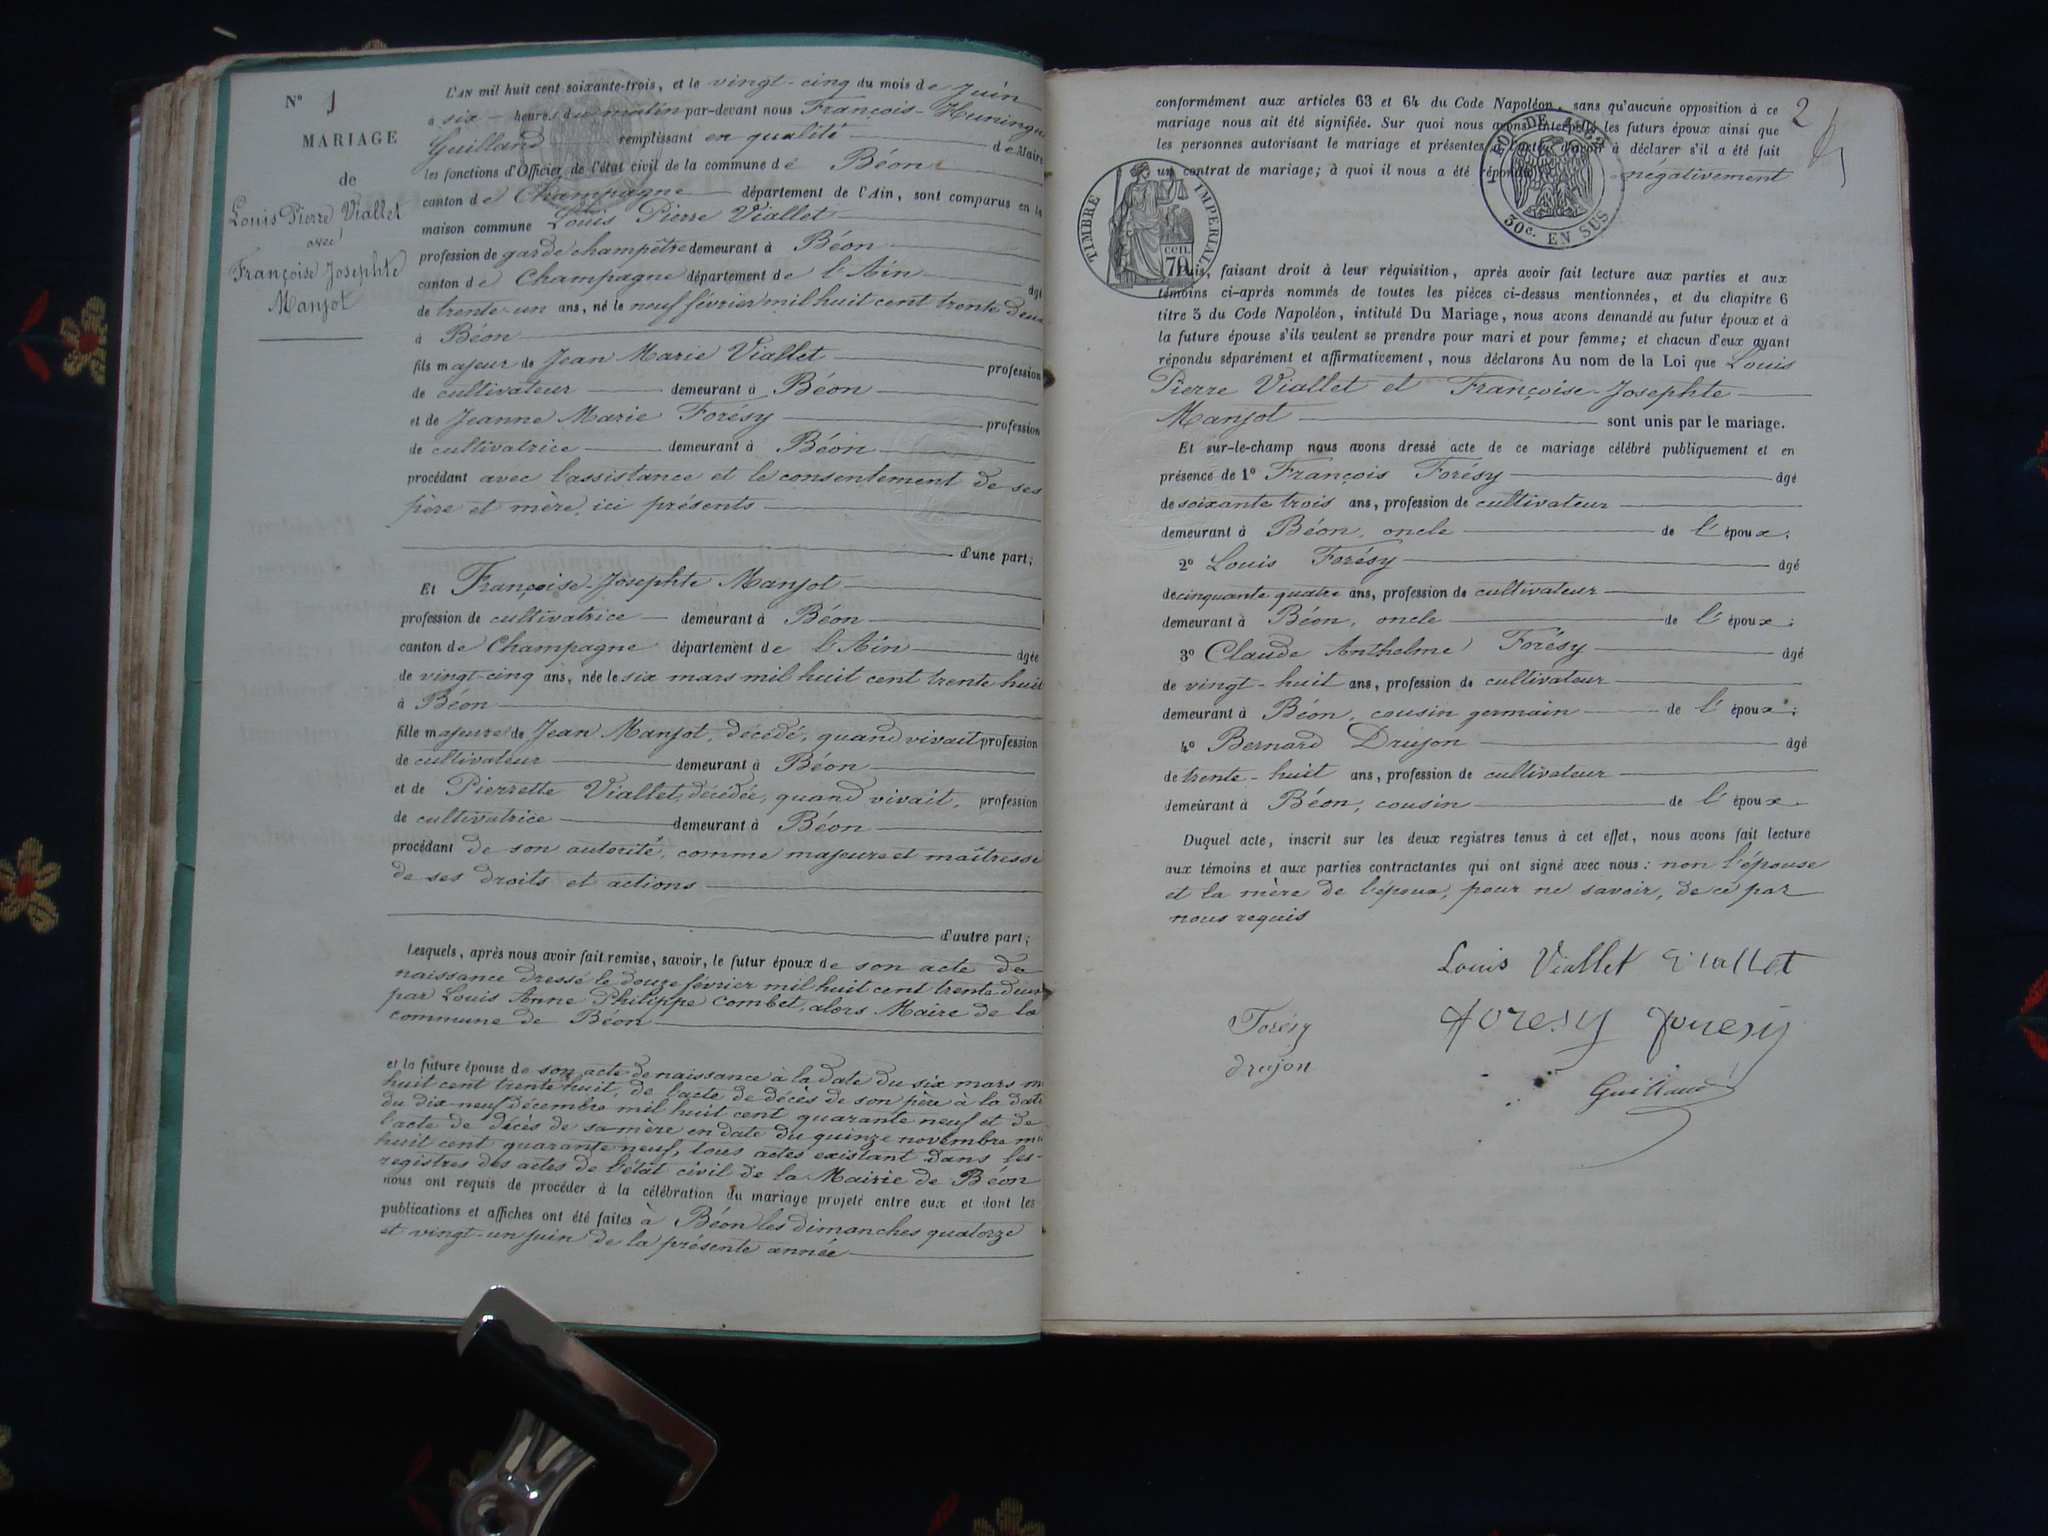 N° 1
MARIAGE
de
Louis Pierre Viallet
avec
Françoise Josephte
Manjot
L'AN mil huit cent soixante-trois, et le vingt-cinq du mois de Juin
a six heures du matin par-devant nous François-Huningue
Guilland remplissant en qualité de Maire
les fonctions d'Officier de l'état civil de la commune de Béon
canton de Champagne département de l'Ain, sont comparus en la
maison commune Louis Pierre Viallet
profession de garde champêtre demeurant à Béon
canton de Champagne département de l'Ain âgé
de trente-un ans, né le neuf février mil huit cent trente deux
à Béon
fils majeur de Jean Marie Viallet profession
de cultivateur demeurant à Béon
et de Jeanne Marie Forésy profession
de cultivatrice demeurant à Béon
procédant avec l'assistance et le consentement de ses
père et mère, ici présents
d'une part;
Et Françoise-Josephte Manjot
profession de cultivatrice demeurant à Béon
canton de Champagne département de l'Ain âgée
de vingt-cinq ans, née le six mars mil huit cent trente huit
à Béon
fille majeure de Jean Manjot, décédé, quand vivait profession
de cultivateur demeurant à Béon
et de Pierrette Viallet, décédée, quand vivait, profession
de cultivatrice demeurant à Béon
procédant de son autorité, comme majeure et maîtresse
de ses droits et actions
d'autre part;
Lesquels, après nous avoir fait remise, savoir, le futur époux de son acte de
naissance dressé le douze février mil huit cent trente deux
par Louis Anne Philippe Combet, alors Maire de la
commune de Béon
et la future épouse de son acte de naissance à la date du six mars m
huit cent trente huit, de l'acte de décès de son père à la date
du dix-neuf décembre mil huit cent quarante neuf et de
l'acte de décès de sa mère en date du quinze novembre mi
huit cent quarante neuf, tous actes existant dans les
registres des actes de l'état civil de la Mairie de Béon
nous ont requis de procéder à la célébration du mariage projeté entre eux et dont les
publications et affiches ont été faites à Béon les dimanches quatorze
et vingt-un juin de la présente année
2
conformément aux articles 63 et 64 du Code Napoléon, sans qu'aucune opposition à ce
mariage nous ait été signifiée. Sur quoi nous avons interpellé les futurs époux ainsi que
les personnes autorisant le mariage et présentes à déclarer s'il a été fait
un contrat de mariage; à quoi il nous a été répondu négativement
TIMBRE IMPERIAL
CEN. 70
30c. EN SUS
Puis, faisant droit à leur réquisition, après avoir fait lecture aux parties et aux
témoins ci-après nommés de toutes les pièces ci-dessus mentionnées, et du chapitre 6
titre 5 du Code Napoléon, intitulé Du Mariage, nous avons demandé au futur époux et à
la future épouse s'ils veulent se prendre pour mari et pour femme; et chacun d'eux ayant
répondu séparément et affirmativement, nous déclarons Au nom de la Loi que Louis
Pierre Viallet et Françoise-Josephte
Manjot sont unis par le mariage.
Et sur-le-champ nous avons dressé acte de ce mariage célébré publiquement et en
présence de 1° François Forésy âgé
de soixante trois ans, profession de cultivateur
demeurant à Béon, oncle de l'époux;
2° Louis Forésy âgé
de cinquante quatre ans, profession de cultivateur
demeurant à Béon, oncle de l'époux;
3° Claude Anthelme Forésy âgé
de vingt-huit ans, profession de cultivateur
demeurant à Béon, cousin germain de l'époux;
4° Bernard Drujon âgé
de trente-huit ans, profession de cultivateur
demeurant à Béon, cousin de l'époux
Duquel acte, inscrit sur les deux registres tenus à cet effet, nous avons fait lecture
aux témoins et aux parties contractantes qui ont signé avec nous: non l'épouse
et la mère de l'époux, pour ne savoir, de ce par
nous requis
Louis Viallet Viallet
Forésy foresy foresy
drujon
Guilland